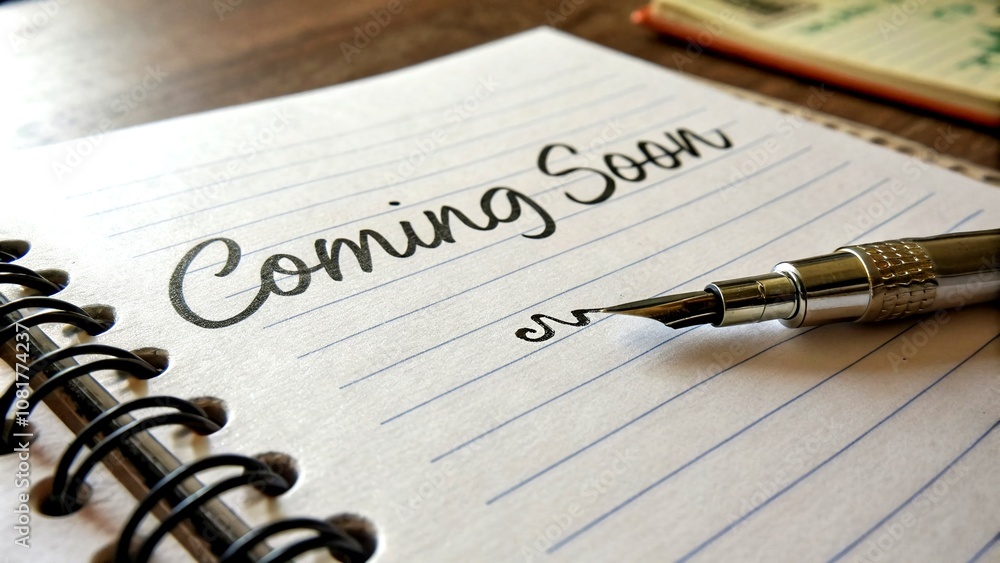 Coming Soon
Adobe Stock | #1081774237